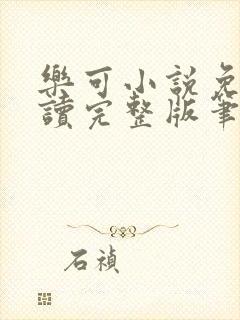 樂可小說免
讀完整版筆
石禎